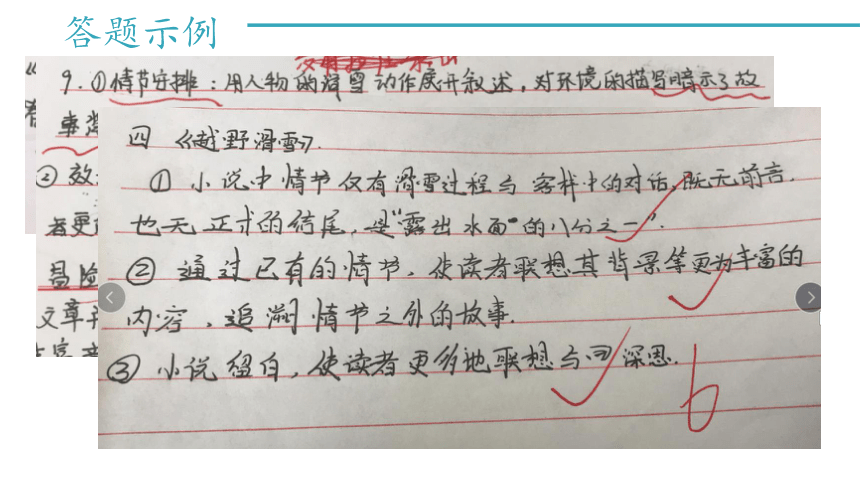 答题示例
9.①情节安排：用人物的滑雪动作展开叙述，对环境的描写暗示了故
事
② 效
者更
冒险
文章
四 《越野滑雪》.
① 小说中情节仅有滑雪过程与客栈中的对话，既无前言.
也无正式的结尾，是“露出水面”的八分之一”.
② 通过已有的情节，使读者联想其背景等更为丰富的
内容，追溯情节之外的故事.
③ 小说留白，使读者更多地联想与 深思.
6